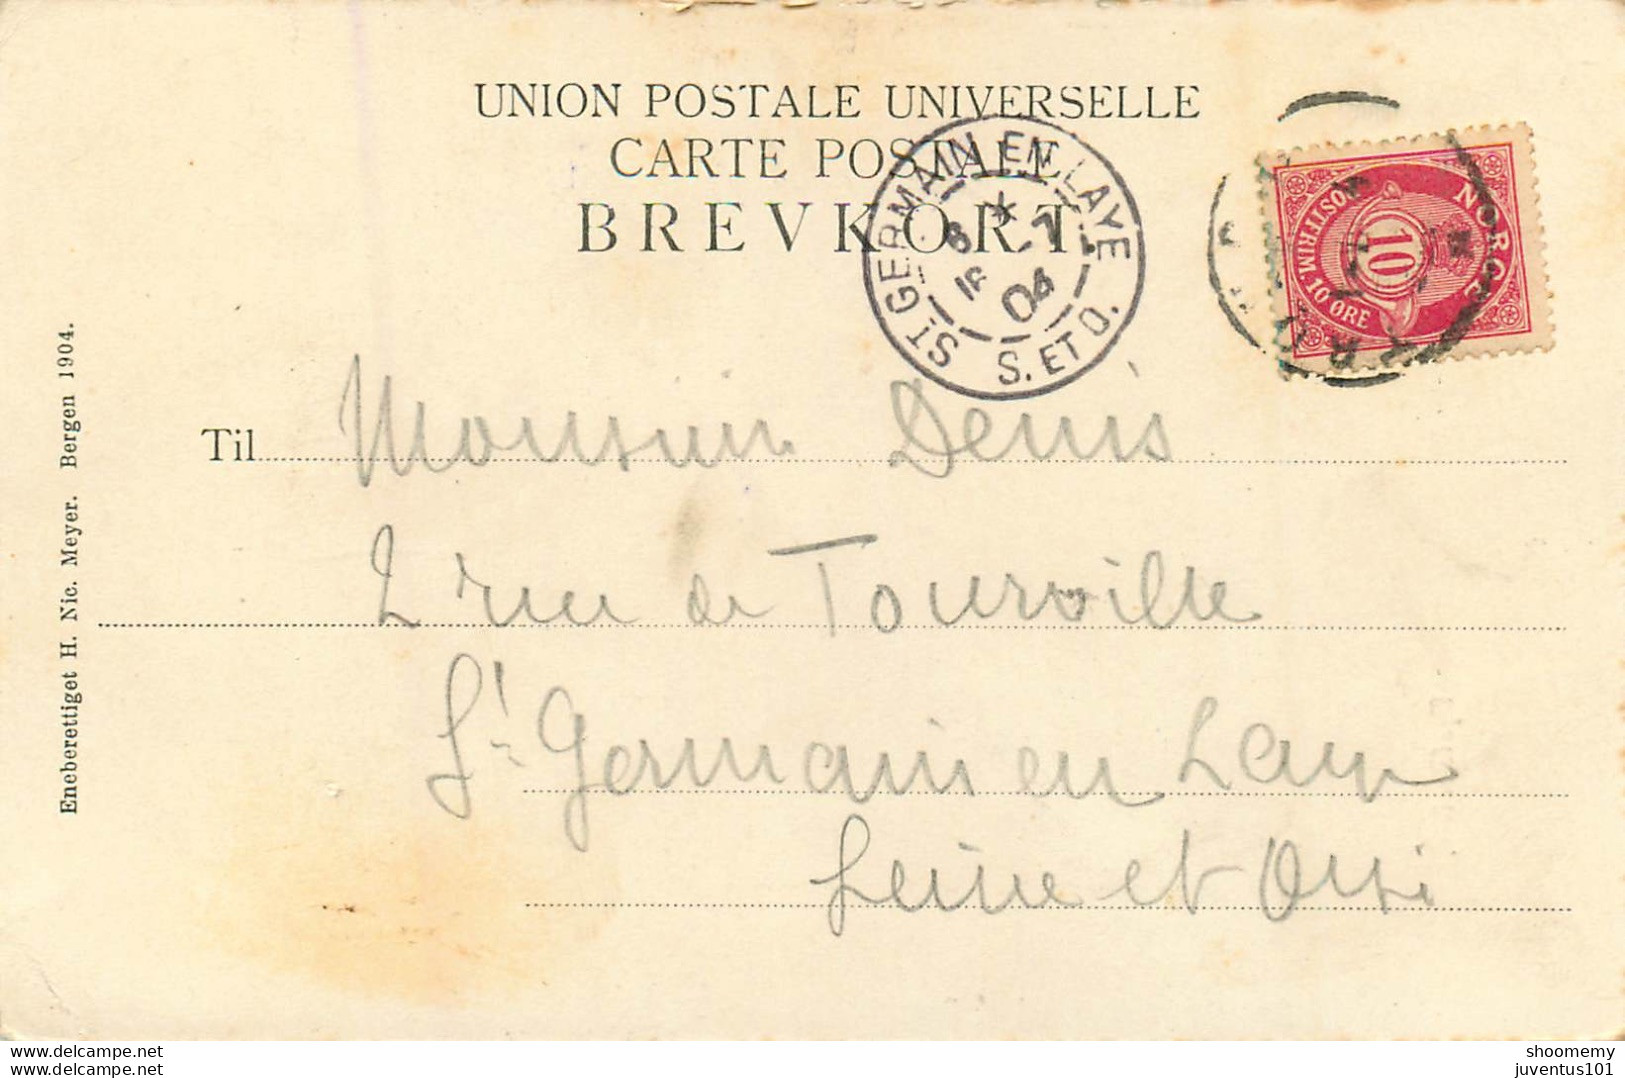 UNION POSTALE UNIVERSELLE
CARTE POSTALE
BREVKORT.
ST GERMAIN EN LAYE
8 * -7
04
S. ET O.
NORGE
POSTFRIM. 10 ØRE
10
Til Monsieur Denis
2 rue de Tourville
St Germain en Laye
Seine et Oise
Eneberettiget H. Nic. Meyer. Bergen 1904.
delcampe.net
shoomemy
juventus101